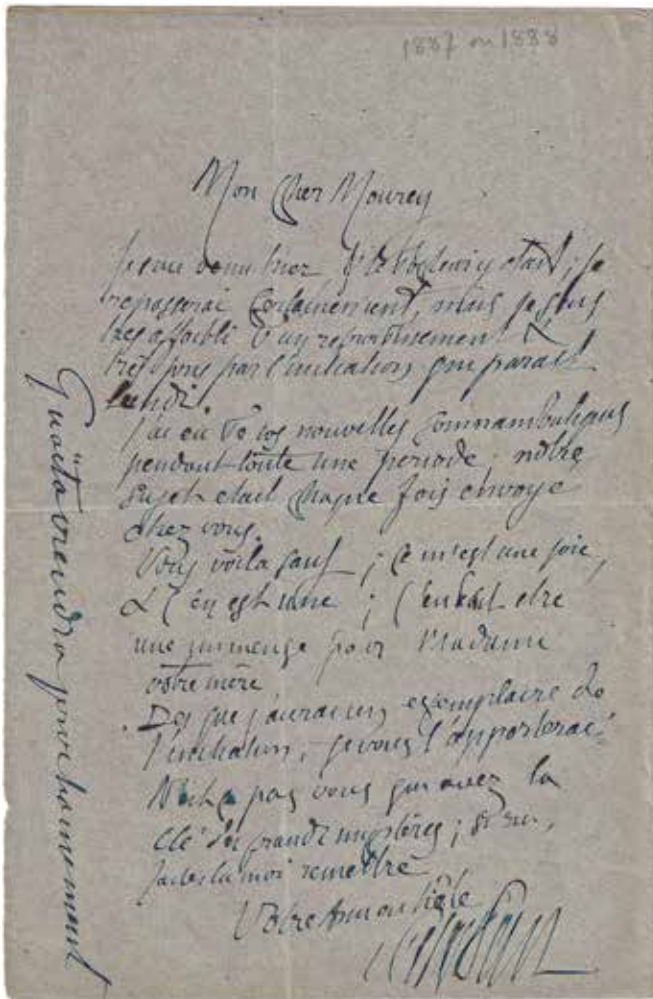 1887 ou 1888
Mon Cher Mourey
venu hier
repasserai certainement, mais je suis
très affaibli d'un refroidissement
très pris par l'initiation qui parait
lundi.
J'ai eu de vos nouvelles somnambuliques
pendant toute une période ; notre
sujet etait chaque fois envoyé
chez vous.
Vous voila sauf ; ce m'est une joie,
c'en est une ; c'en doit etre
une immense pour Madame
votre mère
Des que j'aurai un exemplaire de
l'initiation, je vous l'apporterai.
N'est ce pas vous qui avez la
clé des grands mystères ; si oui,
faites la moi remettre
Votre
Guaita viendra prochainement